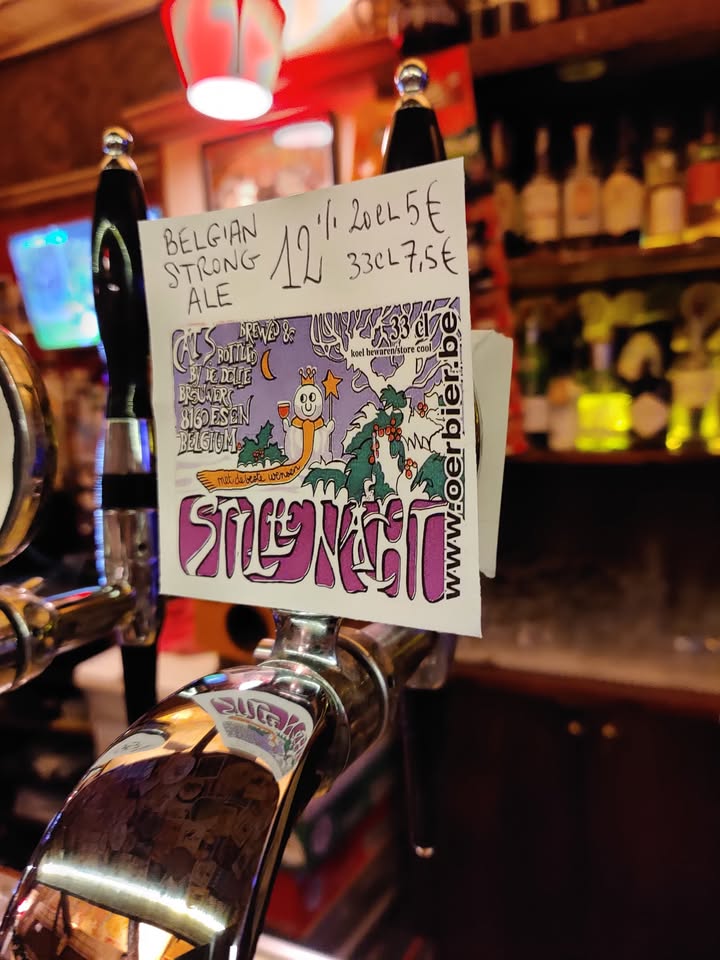 BELGIAN
STRONG
ALE
12%
20cL 5€
33cL 7,5€
BREWED &
BOTTLED
BY DE DOLLE
BROUWERS
8160 ESEN
BELGIUM
33 cl
koel bewaren/store cool
met de beste wensen
STILLE NACHT
www.oerbier.be